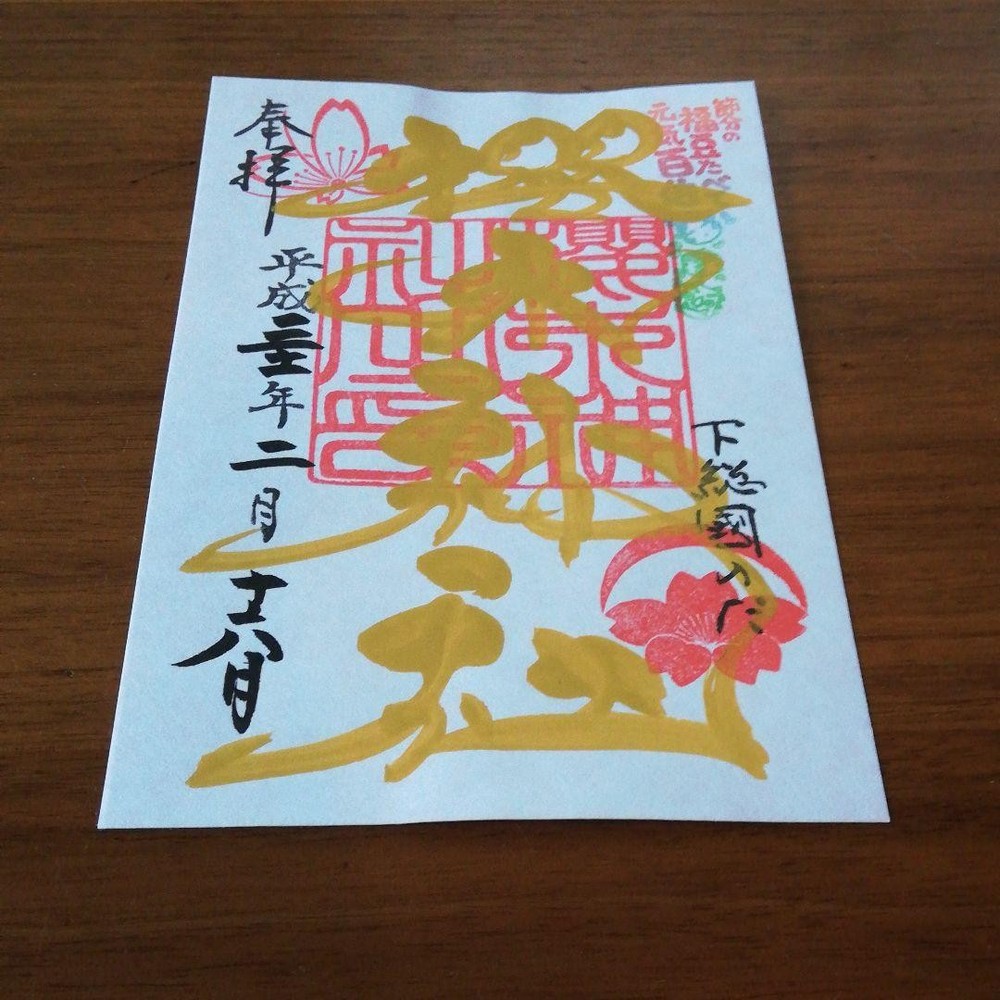 節分の
福豆たべ
元気百
下総國のだ
櫻木神社
奉拝
平成三十一年二月十八日